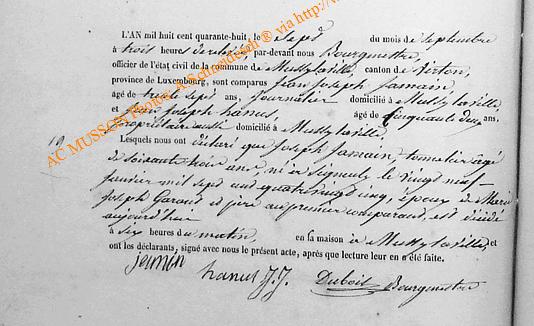 L'AN mil huit cent quarante-huit, le sept du mois de septembre
à trois heures de relevée, par-devant nous Bourgmestre,
officier de l'état civil de la commune de Mussy la ville, canton de Virton,
province de Luxembourg, sont comparus Jean Joseph Jamain,
âgé de trente sept ans, journalier domicilié à Mussy la ville,
et Jean Joseph hanus, âgé de cinquante deux ans,
propriétaire aussi domicilié à Mussy la ville.
Lesquels nous ont déclaré que Joseph Jamain, tonnelier âgé
de soixante trois ans, né à Signeulx le vingt neuf
janvier mil sept cent quatre vingt cinq, époux de Marie
Joseph Garand et père au premier comparant, est décédé
aujourd'hui
à six heures du matin, en sa maison à Mussy la ville, et
ont les déclarants, signé avec nous le présent acte, après que lecture leur en a été faite.
jamin hanus J.J. Dubois Bourgmestre
19
AC MUSSON Photos A.Schneidesch ® via http://w